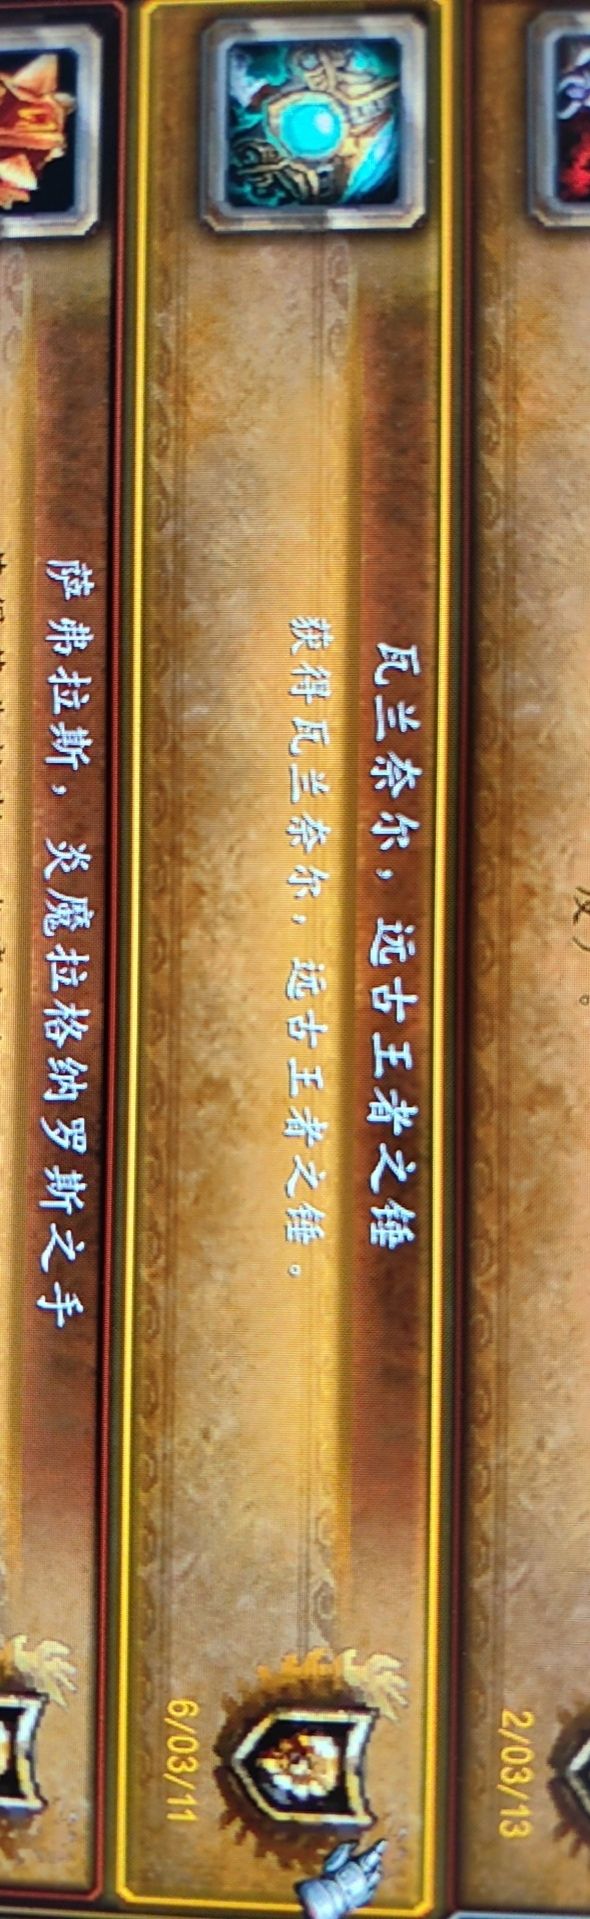 及）。
2/03/13
瓦兰奈尔，远古王者之锤
获得瓦兰奈尔，远古王者之锤。
6/03/11
萨弗拉斯，炎魔拉格纳罗斯之手